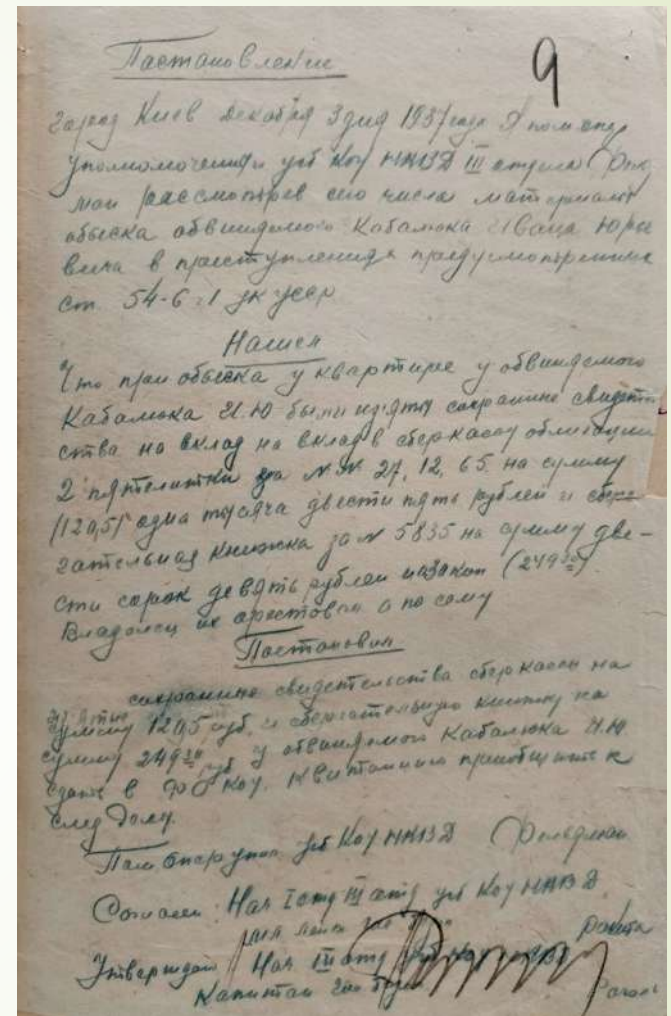 Постановление
9
город Киев декабря 3 дня 1937 года Я пом опер
уполномоченный угб Коу НКВД III отдела
рассмотрев сего числа материал
обыска обвиндмого Кабалюка Ивана Юрь
вича в преступлениях предусмотренных
ст. 54-6 ч 1 ук усср
Нашел
Что при обыска у квартире у обвиндмого
Кабалюка И.Ю были из'яты сохранные свидетель
ства на вклад на вклад в сберкассу облигации
2 пятилитки за № № 27, 12, 65 на сумму
(1205) одна тысяча двести пять рублей и сбере
гательная книжка за № 5835 на сумму две-
сти сорок девять рублей (249
Владелец их арестован а по сему
Постановил
сохранные свидетельства сберкассы на
сумму 1205 руб. и сберегательную книжку на
сумму 249 руб у обвиндмого Кабалюка И.Ю
сдать в ФО Коу. Квитанцию приобщить к
след делу.
Пом опер упол угб Коу НКВД
Согласен: Нач I отд III отд угб Коу НКВД
Утверждаю Нач III отд угб Коу НКВД
Капитан гос без